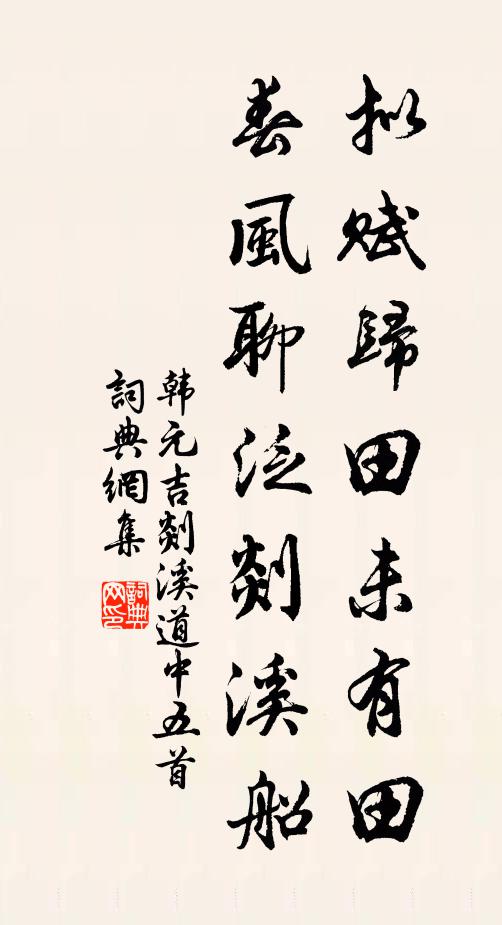 拟赋歸田未有田
春風聊泛剡溪船
韩元吉剡溪道中五首
詞典網集
詞典
网印